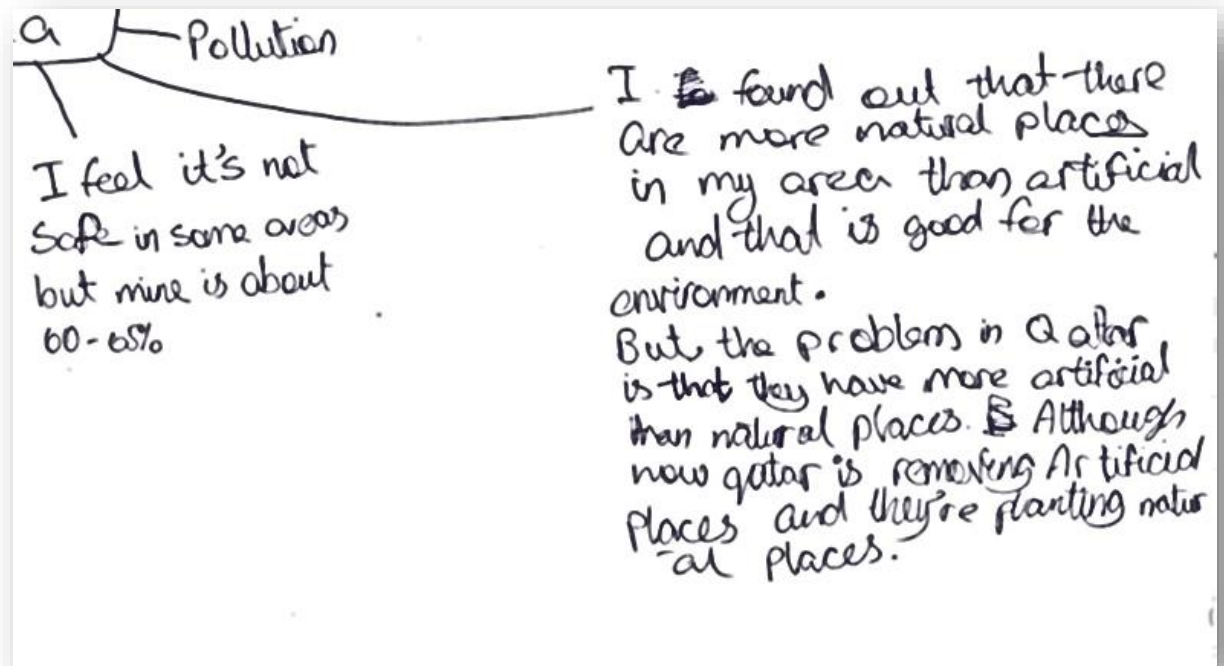 a
Pollution
I feel it's not
safe in some areas
but mine is about
60-65%
I found out that there
are more natural places
in my area than artificial
and that is good for the
environment.
But the problem in Qatar
is that they have more artificial
than natural places. Although
now qatar is removing Artificial
Places and they're planting natur
-al places.